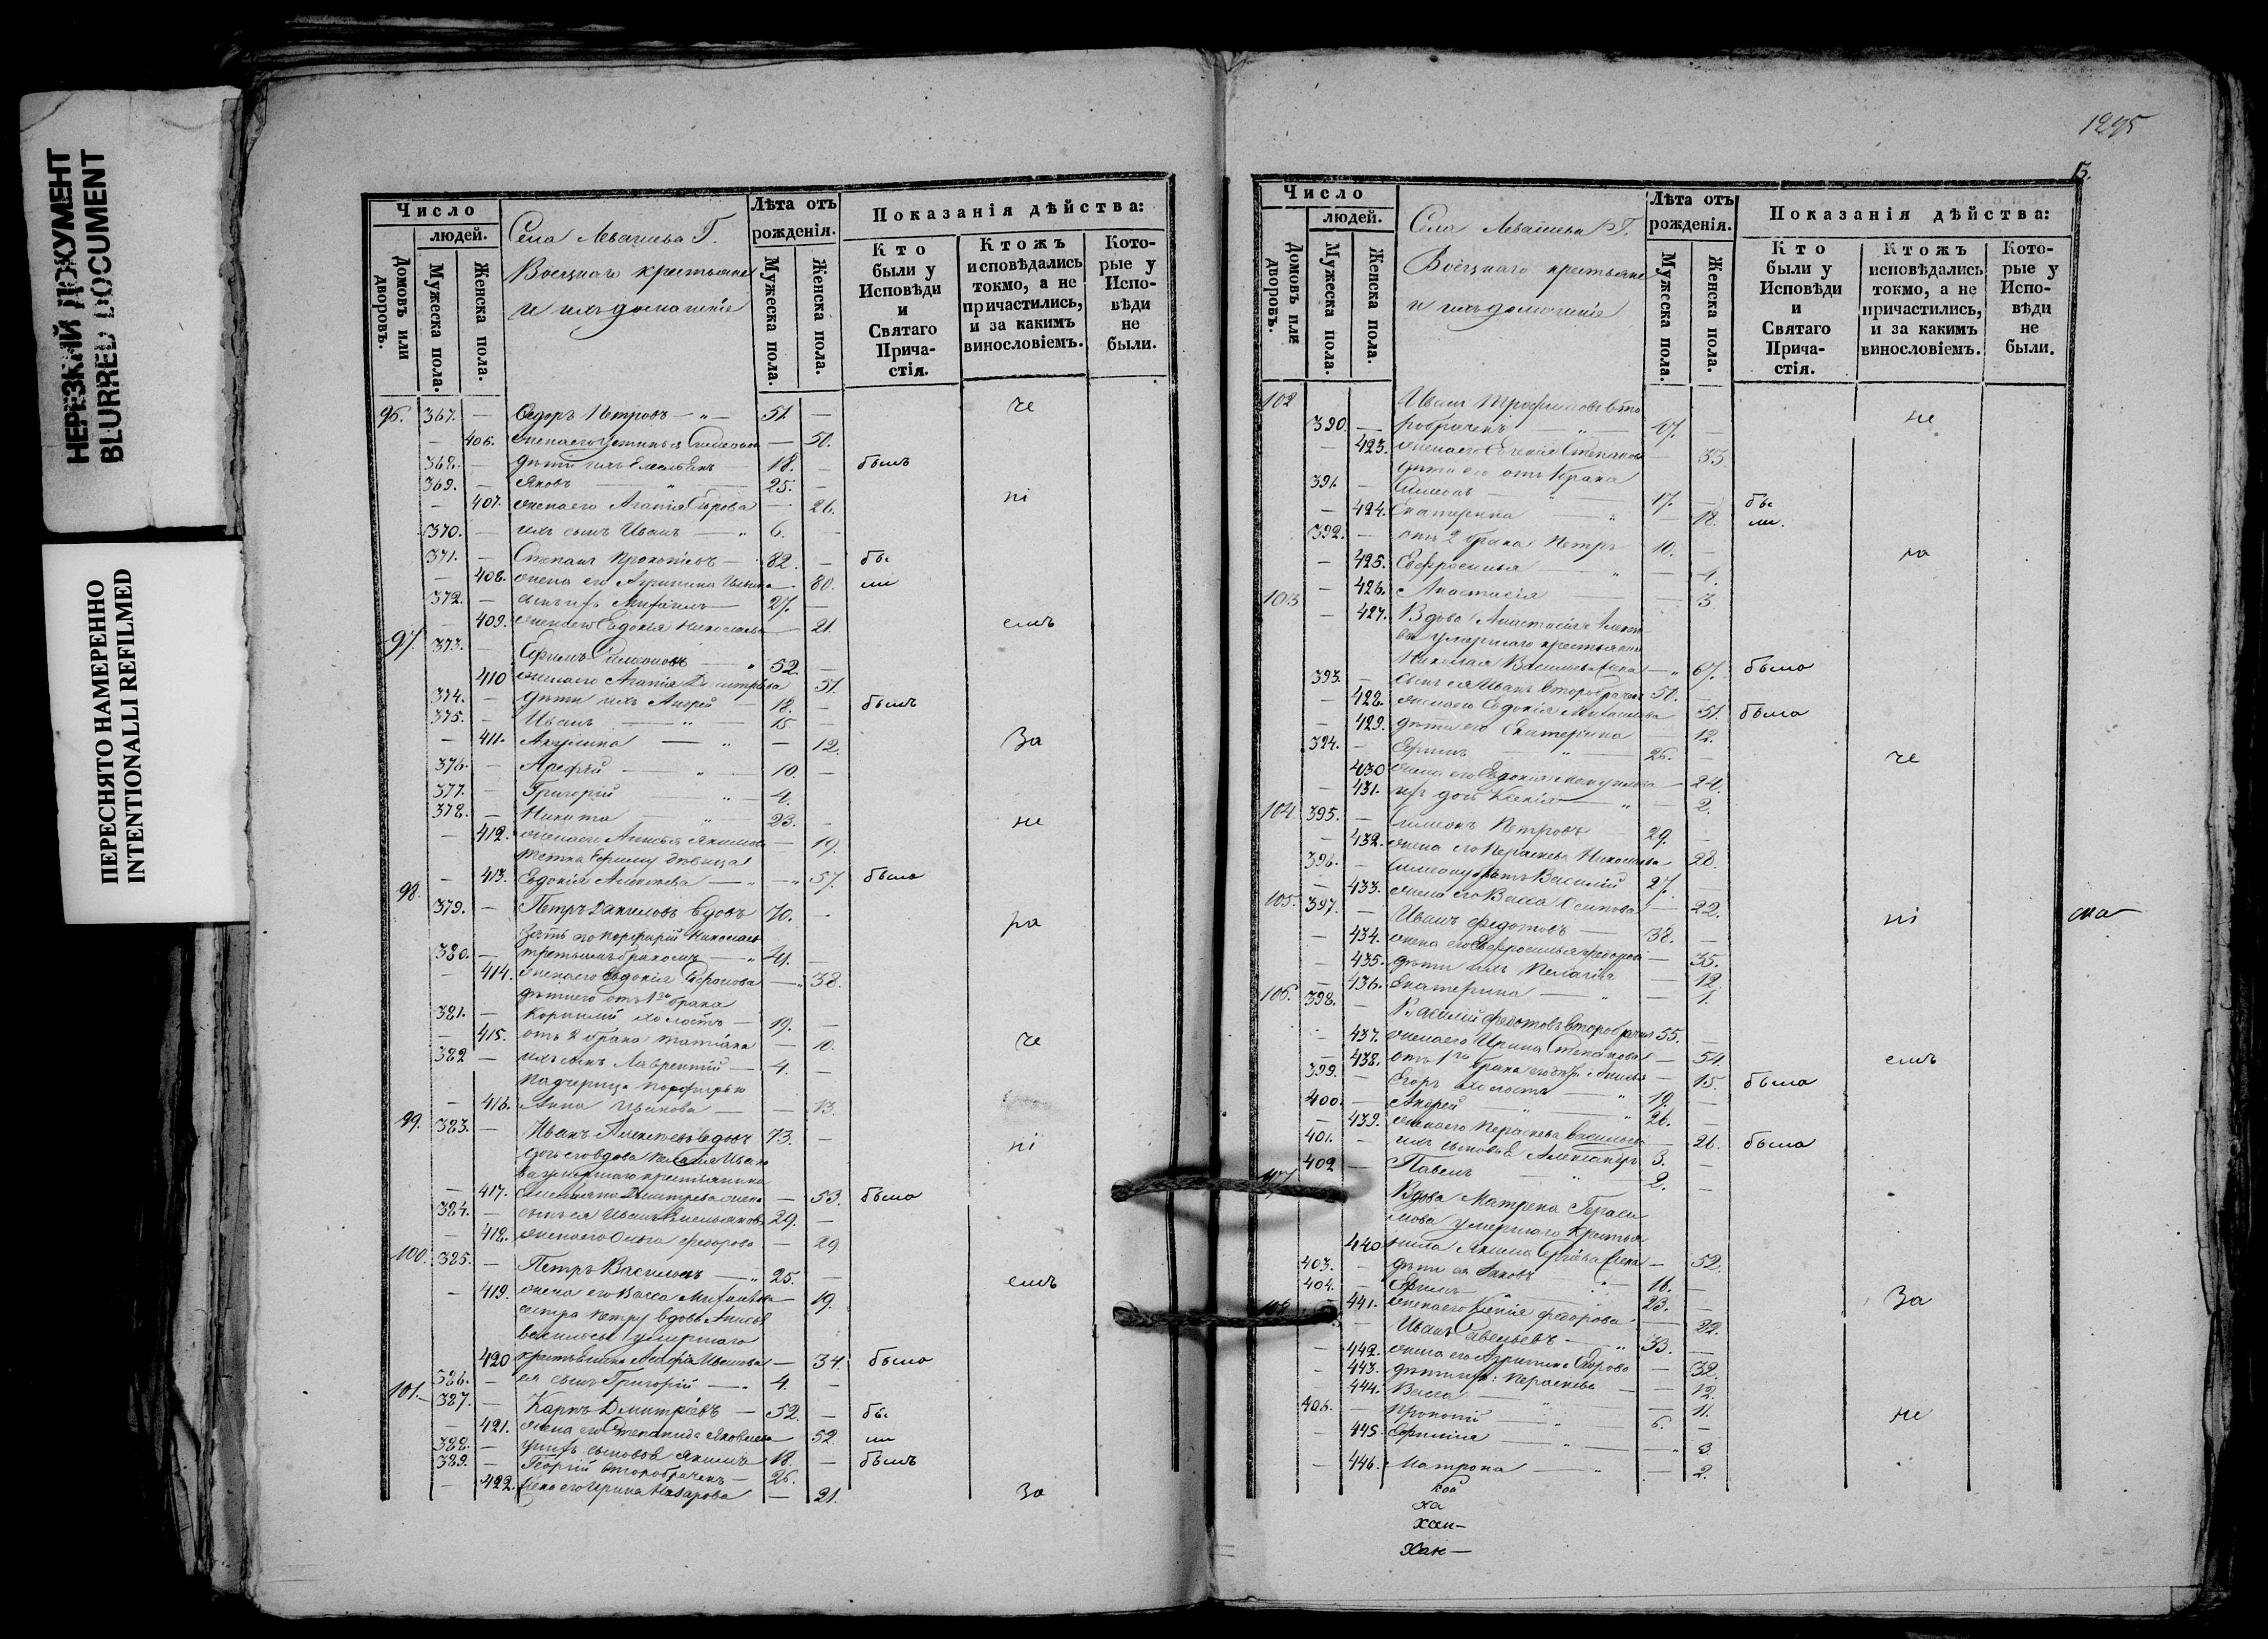 НЕРЕЗКИЙ ДОКУМЕНТ
BLURRED DOCUMENT
ПЕРЕСНЯТО НАМЕРЕННО
INTENTIONALLI REFILMED
Число
людей.
Домовъ или дворовъ.
Мужеска пола.
Женска пола.
Села Левашева Г.
Воецкаго крестьяне
и ихъ домашнія
Лѣта отъ рожденія.
Мужеска пола.
Женска пола.
Показанія дѣйства:
Кто были у Исповѣди и Святаго Причастія.
Ктожъ исповѣдались токмо, а не причастились, и за какимъ винословіемъ.
Которые у Исповѣди не были.
96. 367. — Ѳедоръ Петровъ — „ — 51. — че
— 406. жена его Устинья Симеонова — 50.
368. — дѣти ихъ Емельянъ 18. — былъ
369. — Яковъ — „ — 25. —
— 407. жена его Агапія Егорова — 26. ні
370. — ихъ сынъ Иванъ — „ 6. —
371. — Степанъ Прокопіевъ — 82. — бы
— 408. жена его Агрипина Иванова — 80. ли
372. — сынъ ихъ Михаилъ — 27. —
— 409. жена его Евдокія Николаева — 21. емъ
97. 373. — Ефимъ Симеоновъ — „ 52. —
— 410 жена его Агапія Димитріева 51.
374. — дѣти ихъ Андрей — 18. — былъ
375. — Иванъ — „ — 15 —
— 411. Акулина — „ — 12. За
376. — Арефій — „ — 10. —
377. — Григорій — „ — 4.
378. — Никита — „ — 23. — не
— 412. жена его Анисья Якимова — 19.
тетка Ефиму дѣвица
— 413. Евдокія Алексѣева — „ — 57. была
98. 379. — Петръ Даниловъ вдовъ 70. —
Зять его Порфирій Николаевъ ра
380. — третьимъ бракомъ — „ 41. —
— 414. жена его Евдокія — 38.
дѣти его отъ 1го брака
381. — Корнилій холостъ — 19. —
— 415. отъ 2 брака Татіана — 10. че
382 — ихъ сынъ Лаврентій — 4. —
Падчерица Порфирью
— 416. Анна Иванова — 13.
99. 383. — Иванъ Алексѣевъ вдовъ 73. —
дочь его вдова Пелагія Ивано ні
ва умершаго крестьянина
— 417. Емельяна Дмитрева жена — 53. была
384. — сынъ ея Иванъ Емельяновъ 29. —
— 418. жена его Ольга Федорова — 29
100. 385. — Петръ Васильевъ — „ 25. —
— 419. жена его Васса Михайлова — 19. емъ
сестра Петру вдова Анисья
Васильева умершаго
420 — 34. была
386. — ея сынъ Григорій — „ 4. —
101. 387. — Карпъ Дмитріевъ — 52. — бы
— 421. жена его Степанида Яковлева 52. ли
388. — у нихъ сыновья Якимъ 18. — былъ
389. — Георгій второбраченъ — 26.
— 422. жена его Ирина Назарова — 21. За
1295
13.
Число
людей.
Домовъ или дворовъ.
Мужеска пола.
Женска пола.
Села Левашева Г.
Воецкаго крестьяне
и ихъ домашнія
Лѣта отъ рожденія.
Мужеска пола.
Женска пола.
Показанія дѣйства:
Кто были у Исповѣди и Святаго Причастія.
Ктожъ исповѣдались токмо, а не причастились, и за какимъ винословіемъ.
Которые у Исповѣди не были.
102 Иванъ Трофимовъ вто
390. — робраченъ — „ — 47. — не
— 423. жена его Евгенія Степанова — 33
дѣти его отъ 1 брака
391. — Симеонъ — „ — 17. — бы
— 424. Екатерина — „ — 18. ли.
392. — отъ 2 брака Петръ 10. — ра
— 425. Евфросинья — „ — 4.
— 426. Анастасія — 3
103 — 427. Вдова Анастасія Алексѣе
ва умершаго крестьянина
Николая Васильева жена — „ 67. была
393. — сынъ ея Иванъ второбрачный 50. —
— 428. жена его Евдокія Михайлова 51. была
— 429. дѣти его Екатерина — 12.
394. — Ефимъ — „ — 26. — че
430 жена его Евдокія — 24.
— 431. ихъ дочь Ксенія — „ — 2.
104. 395. — Симеонъ Петровъ — 29. —
— 432. жена его Пераскева Николаева 28.
396. — Симеону братъ Василій 27. —
— 433. жена его Васса Осипова — 22.
105. 397. — Иванъ Федотовъ — 38. — ні
— 434. жена его Евфросинья Федорова — 35.
— 435. дѣти ихъ Пелагія — 12
— 436. Екатерина — „ — 1.
106. 398. — Василій Федотовъ второбрачный 55. —
— 437. жена его Ирина Степанова — 54. емъ
— 438. отъ 1го брака его дочь Анисья — 15. была
399. — Егоръ холостъ — „ 19. —
400. — Андрей — „ — 26. —
— 439. жена его Пераскева Васильева — 26. была
401. — ихъ сыновья Александръ 3. —
402 — Павелъ — „ — 2. —
107 Вдова Матрена Гераси
мова умершаго крестья
440 нина Якима Сергѣева жена — 52.
403. — дѣти ея Яковъ 16. —
404. — Ефимъ 23. — За
— 441. жена его Ксенія Федорова — 22.
108 — Иванъ Савельевъ — „ 33. —
— 442. жена его Агрипина Егорова — 32.
— 443. дѣти ихъ: Пераскева — 12.
— 444. Васса — „ — 11.
406. — Прокопій — „ 6. — не
— 445. Ефимія — „ — 3
— 446. Матрона — „ — 2.
ха
хан—
Хан—